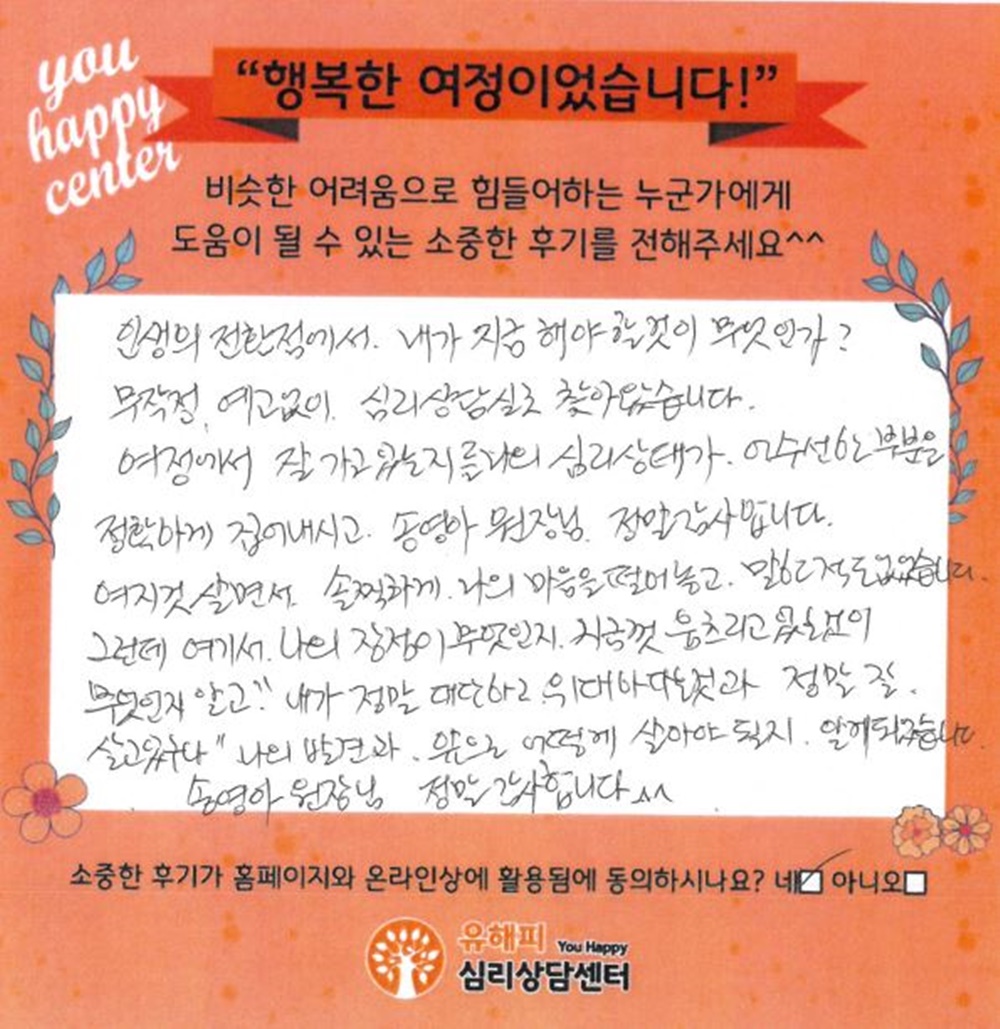 you
happy
center
“행복한 여정이었습니다!”
비슷한 어려움으로 힘들어하는 누군가에게
도움이 될 수 있는 소중한 후기를 전해주세요^^
인생의 전환점에서. 내가 지금 해야 할것이 무엇인가?
무작정, 예고없이. 심리상담실로 찾아왔습니다.
여정에서 잘 가고있는지를 나의 심리상태가. 어수선한 부분을
정확하게 집어내시고. 송영아 원장님. 정말 감사합니다.
여지껏 살면서. 솔찍하게. 나의 마음을 떨어놓고. 말한적도 없었습니다.
그런데 여기서. 나의 장점이 무엇인지. 지금껏 움츠리고 있는것이
무엇인지 알고 " 내가 정말 대단하고 위대하다는것과 정말 잘.
살고있구나" 나의 발견과. 어떻게 살아야 될지. 알게되었습니다.
송영아 원장님 정말 감사합니다^^
소중한 후기가 홈페이지와 온라인상에 활용됨에 동의하시나요? 네☑ 아니오☐
유해피 You Happy
심리상담센터